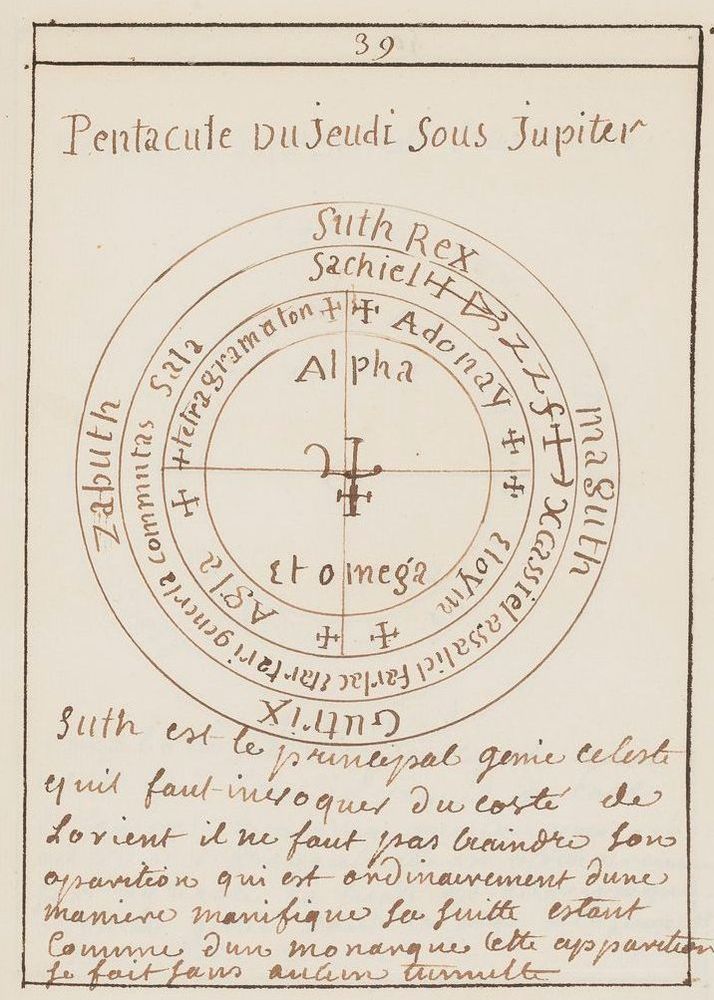 39
Pentacule Du Jeudi Sous Jupiter
Suth Rex
Maguth
Gutrix
Zabuth
Sachiel
Cassiel assaliel
generla communtas Sala
tetragramaton
Adonay
Eloym
Agla
Alpha
Et omega
Suth est le principal genie celeste
quil faut invoquer du costé de
Lorient il ne faut pas craindre son
aparition qui est ordinairement dune
maniere manifique sa suitte estant
Comme dun monarque Cette apparition
se fait sans aucun tumulte